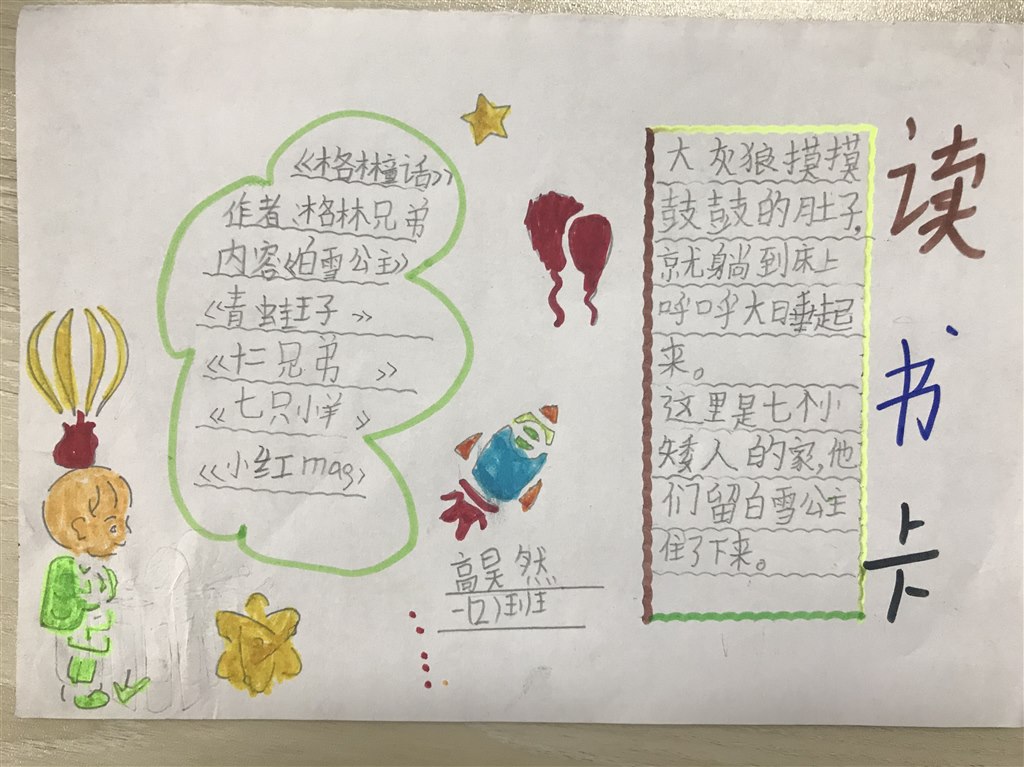 读书卡
《格林童话》
作者、格林兄弟
内容《白雪公主》
《青蛙王子》
《十二兄弟》
《七只小羊》
《小红mag》
大灰狼摸摸
鼓鼓的肚子,
就躺到床上
呼呼大日垂起
来。
这里是七个小
矮人的家,他
们留白雪公主
住了下来。
高昊然
一(2)班